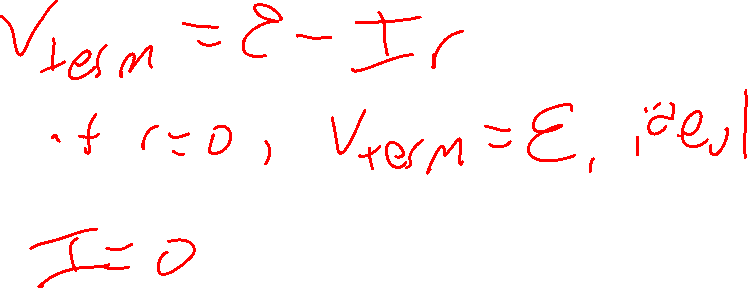 V_term = ℰ - Ir
if r=0, V_term = ℰ, ideal
I=0